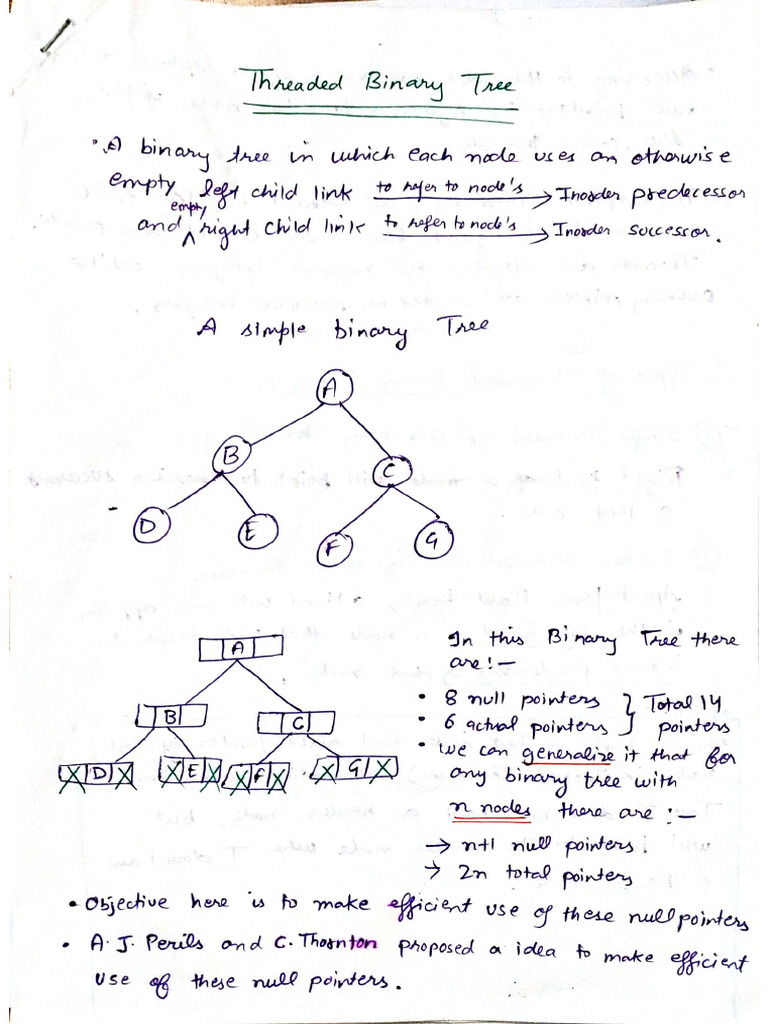 Threaded Binary Tree
• A binary tree in which each node uses an otherwise
empty left child link to refer to node's → Inorder predecessor
and empty right child link to refer to node's → Inorder successor.
A simple binary Tree
A
B
C
D
E
F
G
In this Binary Tree there
are:-
• 8 null pointers } Total 14
• 6 actual pointers } pointers
• we can generalize it that for
any binary tree with
n nodes there are :-
→ n+1 null pointers.
→ 2n total pointers
A
B
C
X D X
X E X
X F X
X G X
• Objective here is to make efficient use of these null pointers
• A.J. Perils and C. Thornton proposed a idea to make efficient
use of these null pointers.